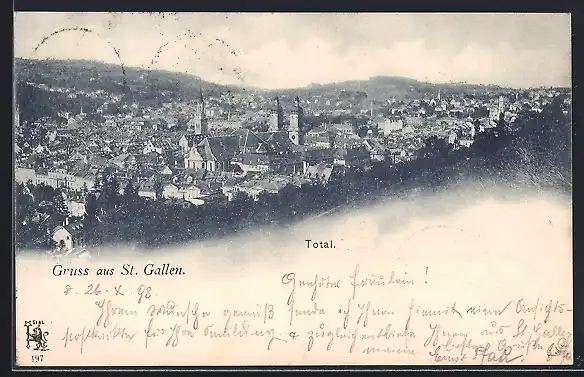 Total.
Gruss aus St. Gallen.
8. 26. X. 98.
Geehrter Fräulein!
Ihrem Wunsche gemäß sende ich Ihnen hiemit eine Ansichts-
postkarte für Ihre Sammlung & zugleich entbiete Ihnen aus St. Gallen
meine besten Grüße
Ernst
SIAL
197